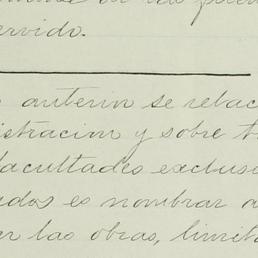 ervido.
anterior se relac
istracion y sobre t
facultades exclus
ados es nombrar a
er las obras, limit